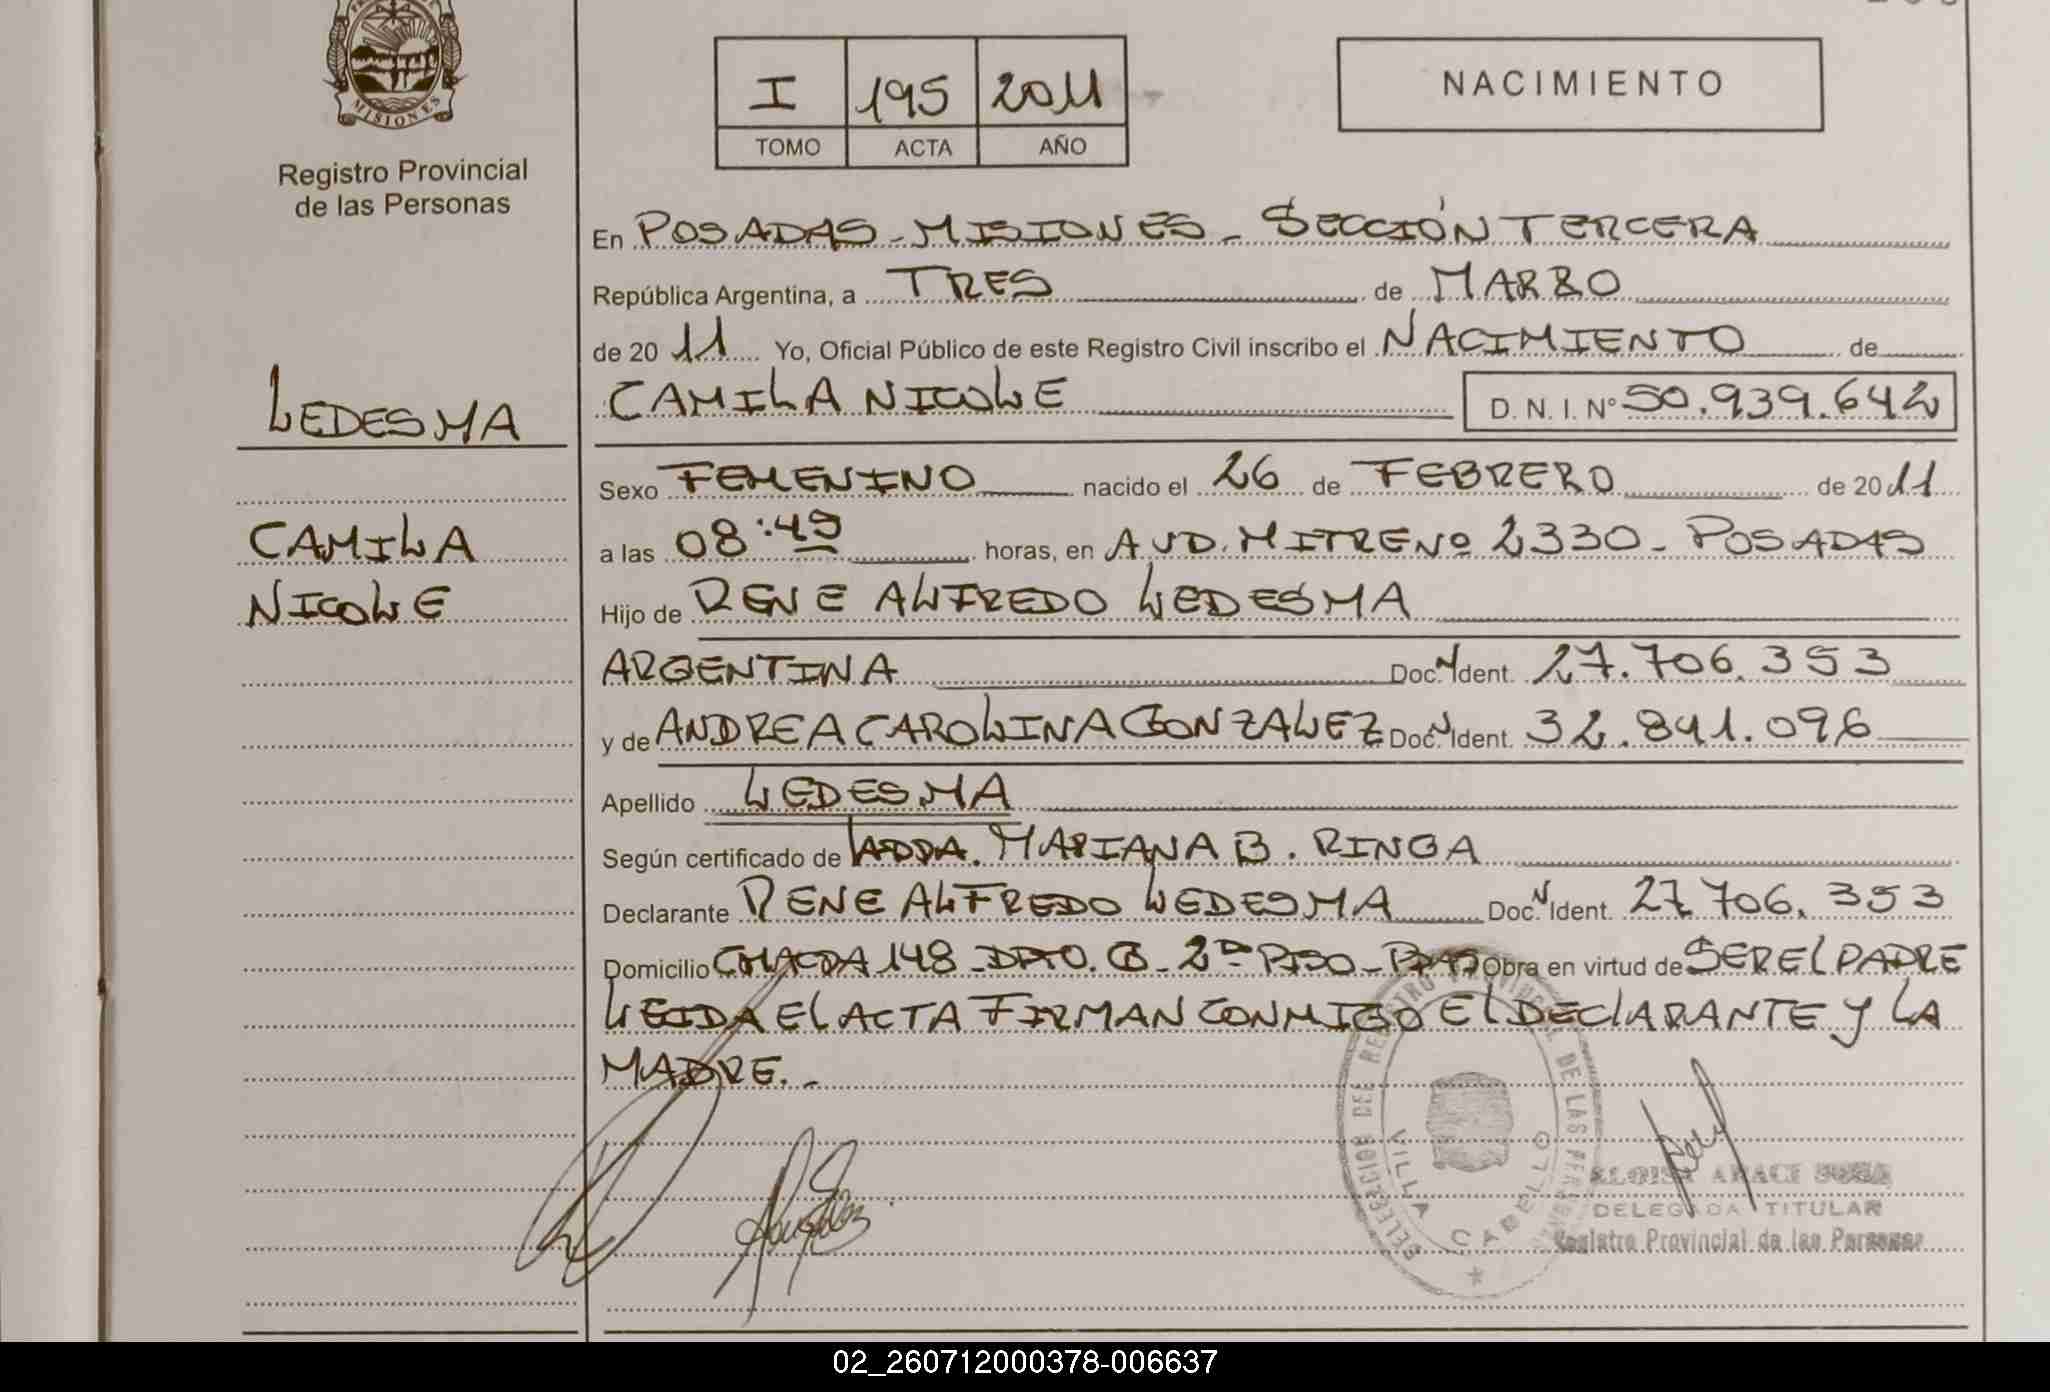 MISIONES
Registro Provincial
de las Personas
I 195 2011
TOMO ACTA AÑO
NACIMIENTO
En POSADAS - MISIONES - SECCIÓN TERCERA
República Argentina, a TRES de MARZO
de 20 11 Yo, Oficial Público de este Registro Civil inscribo el NACIMIENTO de
CAMILA NICOLE D. N. I. Nº 50.939.642
LEDESMA
CAMILA
NICOLE
Sexo FEMENINO nacido el 26 de FEBRERO de 20 11
a las 08:49 horas, en AVD. MITRE Nº 2330 - POSADAS
Hijo de RENE ALFREDO LEDESMA
ARGENTINA Doc. N Ident. 27.706.353
y de ANDREA CAROLINA GONZALEZ Doc. N Ident. 32.841.096
Apellido LEDESMA
Según certificado de MARIANA B. RINGA
Declarante RENE ALFREDO LEDESMA Doc. N Ident. 27.706.353
Domicilio CHACRA 148 - DPTO. - 2º PISO - Obra en virtud de SER EL PADRE
LEIDA EL ACTA FIRMAN CONMIGO EL DECLARANTE Y LA
MADRE. -
DELEGACION DEL REGISTRO PROVINCIAL DE LAS PERSONAS
VILLA CABELLO
DELEGADA TITULAR
Registro Provincial de las Personas
02_260712000378-006637